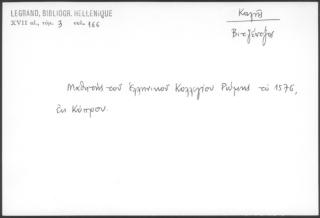 LEGRAND, BIBLIOGR. HELLENIQUE
XVII αἰ., τόμ. 3 σελ. 166
Βικέντιος
Μαθητὴς τοῦ Ἑλληνικοῦ Κολλεγίου Ρώμης τὸ 1576,
ἐκ Κύπρου.